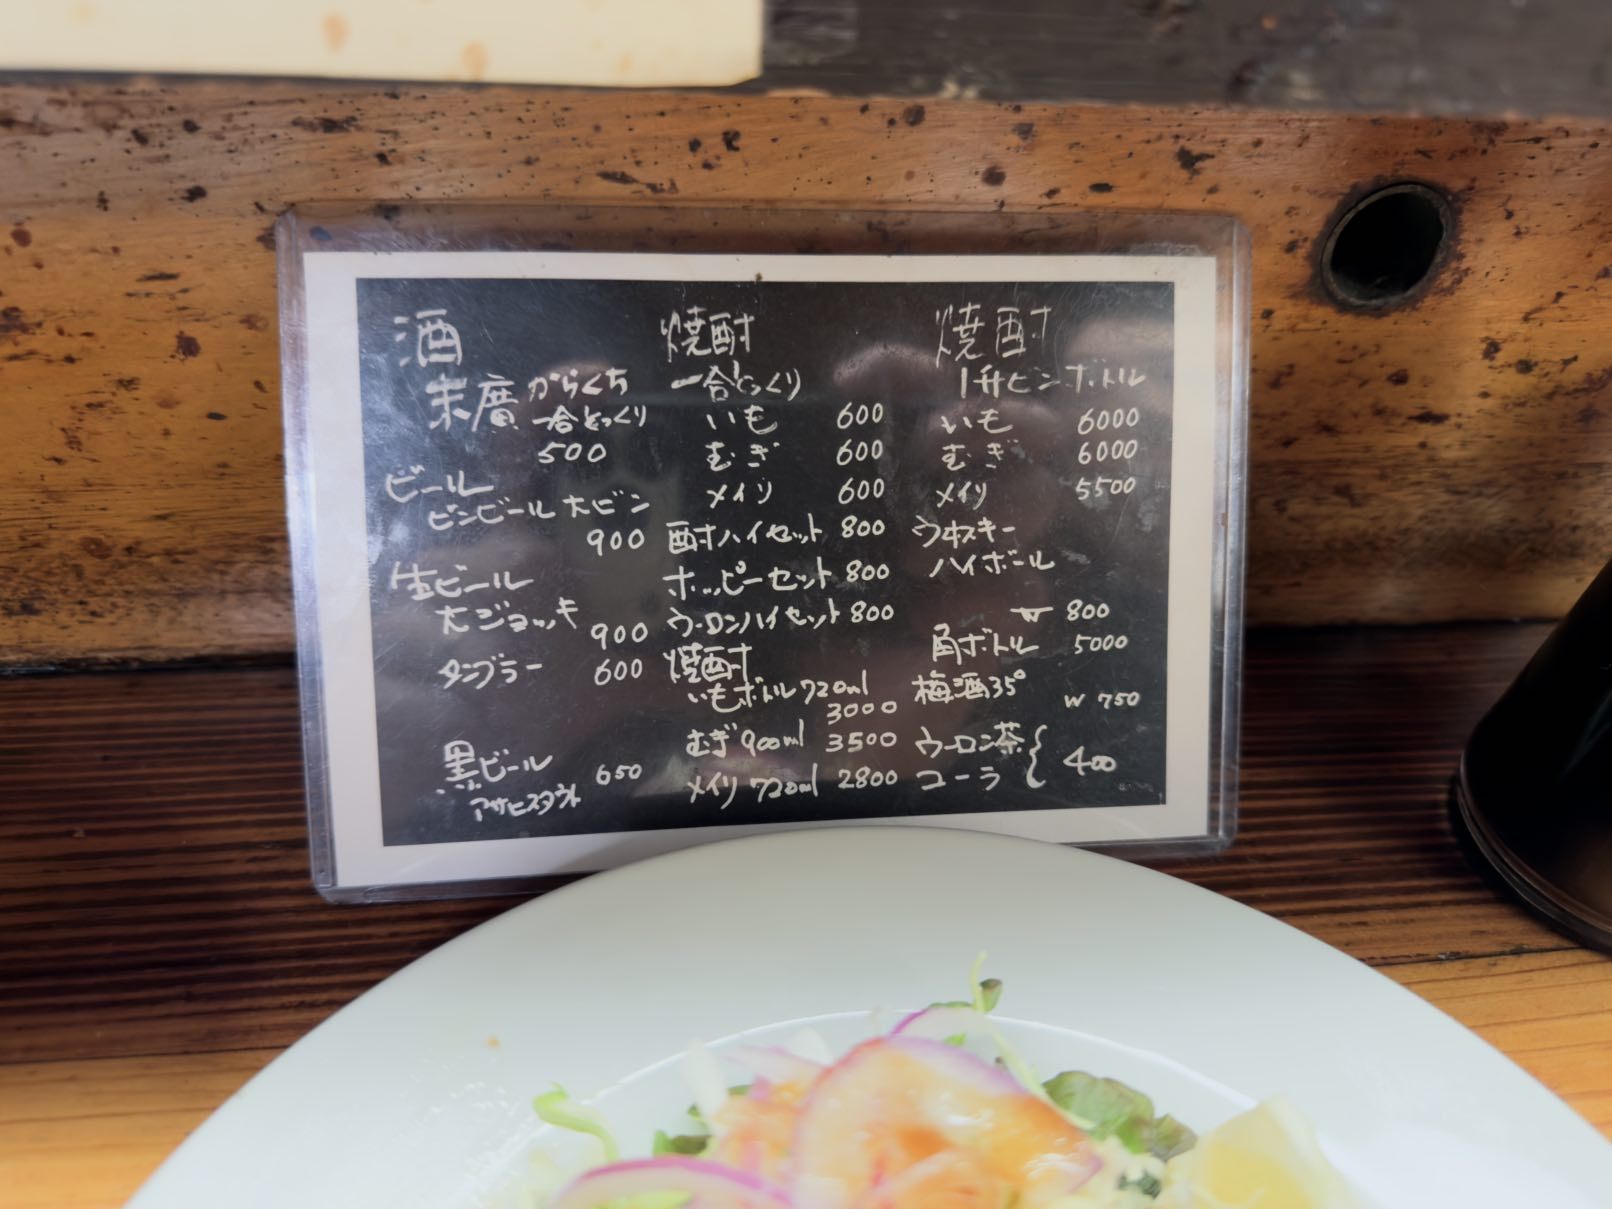 酒
末廣 からくち
一合とっくり
500
ビール
ビンビール 大ビン
900
生ビール
大ジョッキ
900
タンブラー 600
黒ビール 650
アサヒスタウト
焼酎
一合とっくり
いも 600
むぎ 600
メイリ 600
酎ハイセット 800
ホッピーセット 800
ウーロンハイセット 800
焼酎
いもボトル720ml
3000
むぎ900ml 3500
メイリ720ml 2800
焼酎
1升ビンボトル
いも 6000
むぎ 6000
メイリ 5500
ウイスキー
ハイボール
W 800
角ボトル 5000
梅酒35°
W 750
ウーロン茶
コーラ { 400